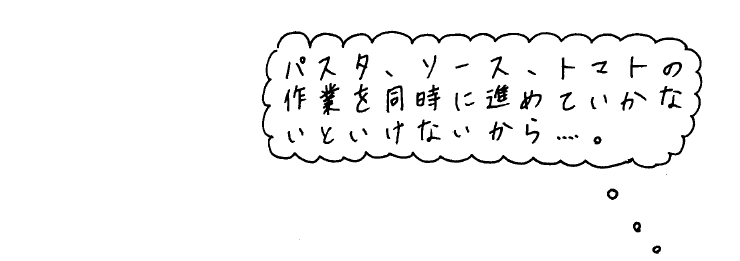 パスタ、ソース、トマトの
作業を同時に進めていかな
いといけないから…。